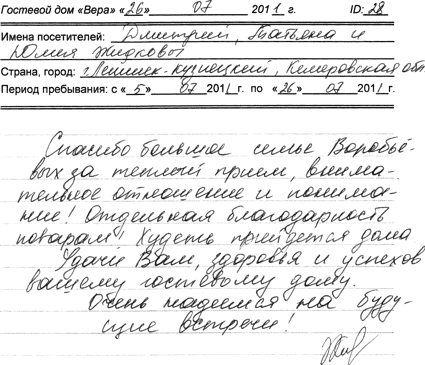 Гостевой дом «Вера» «26» 07 2011 г. ID: 28
Имена посетителей: Дмитрий, Татьяна и
Юлия Жидковы
Страна, город: г. Ленинск-кузнецкий, Кемеровская обл.
Период пребывания: с «5» 07 2011 г. по «26» 07 2011 г.
Спасибо большое семье Воробьё-
вых за теплый прием, внима-
тельное отношение и понима-
ние! Отдельная благодарность
поварам! Худеть прийдется дома
Удачи Вам, здоровья и успехов
вашему гостевому дому.
Очень надеемся на буду-
щие встречи!